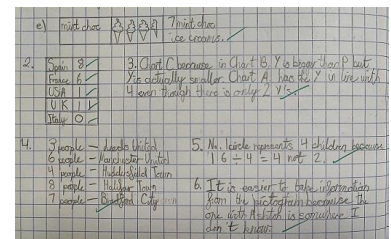 e) mint choc 7 mint choc
ice creams.
2. Spain 8
France 6
USA 1
UK 1
Italy 0
3. Chart C because in Chart B, Y is bigger than P but
Y is actually smaller. Chart A has the Y in line with
4 even though there is only 2 V's.
4. 3 people - Leeds United
6 people - Manchester United
4 people - Huddersfield Town
8 people - Halifax Town
7 people - Bradford City
5. No. 1 circle represents 4 children because
16 ÷ 4 = 4 not 2.
6. It is easier to take information
from the pictogram because the
one with Ashton is somewhere I
don't know.